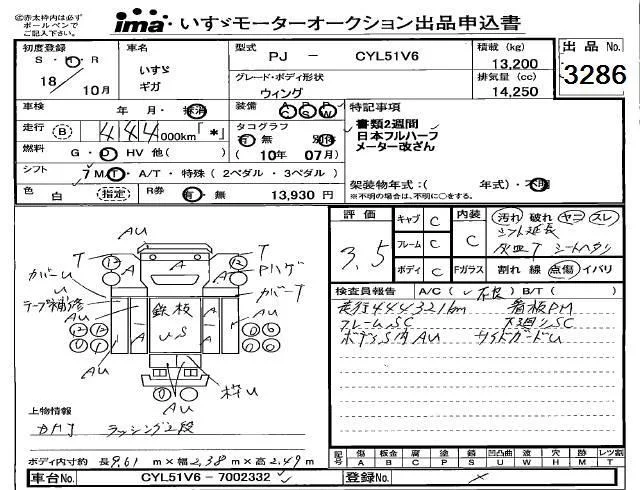 ㊟赤太枠内は必ず
ボールペンで
ご記入下さい。
ima いすゞモーターオークション出品申込書
初度登録 S・H・R 18年 10月
車名 いすゞ ギガ
型式 PJ － CYL51V6
グレード・ボディ形状 ウィング
積載 (kg) 13,200
排気量 (cc) 14,250
出品 No. 3286
車検 年 月・抹消
装備 AC PS PW
特記事項
書類2週間
日本フルハーフ
メーター改ざん
走行 (B) 444,000km「*」
タコグラフ 有・無 別体
(10年 07月)
燃料 G・D・HV 他( )
シフト 7 MT・A/T・特殊(2ペダル・3ペダル)
架装物年式:( 年式)・不明
※不明の場合は、不明に○をする。
色 白 (指定) R券 有・無 13,930 円
評価 3.5
キャブ C
フレーム C
ボディ C
内装 C
Fガラス
汚れ 破れ ヤコ スレ
シフト延長
灰皿T シートヘタリ
割れ 線 点傷 イバリ
検査員報告 A/C( 不良 ) B/T( )
走行444321km 看板PM
フレームSC 下廻りSC
ボディS内AU サイドガードU
AU
T
カバーU
テープ補修
AU
T
Pハゲ
カバーT
鉄板
US
AU
枠U
AU
上物情報
カドI ラッシング2段
ボディ内寸約 長9.61m×幅2.38m×高2.49m
記号 傷 板金 腐 塗 錆 凹凸曲 渡 穴 跡 レツ割
A B C P S U W H M T
車台No. CYL51V6－7002332
登録No.